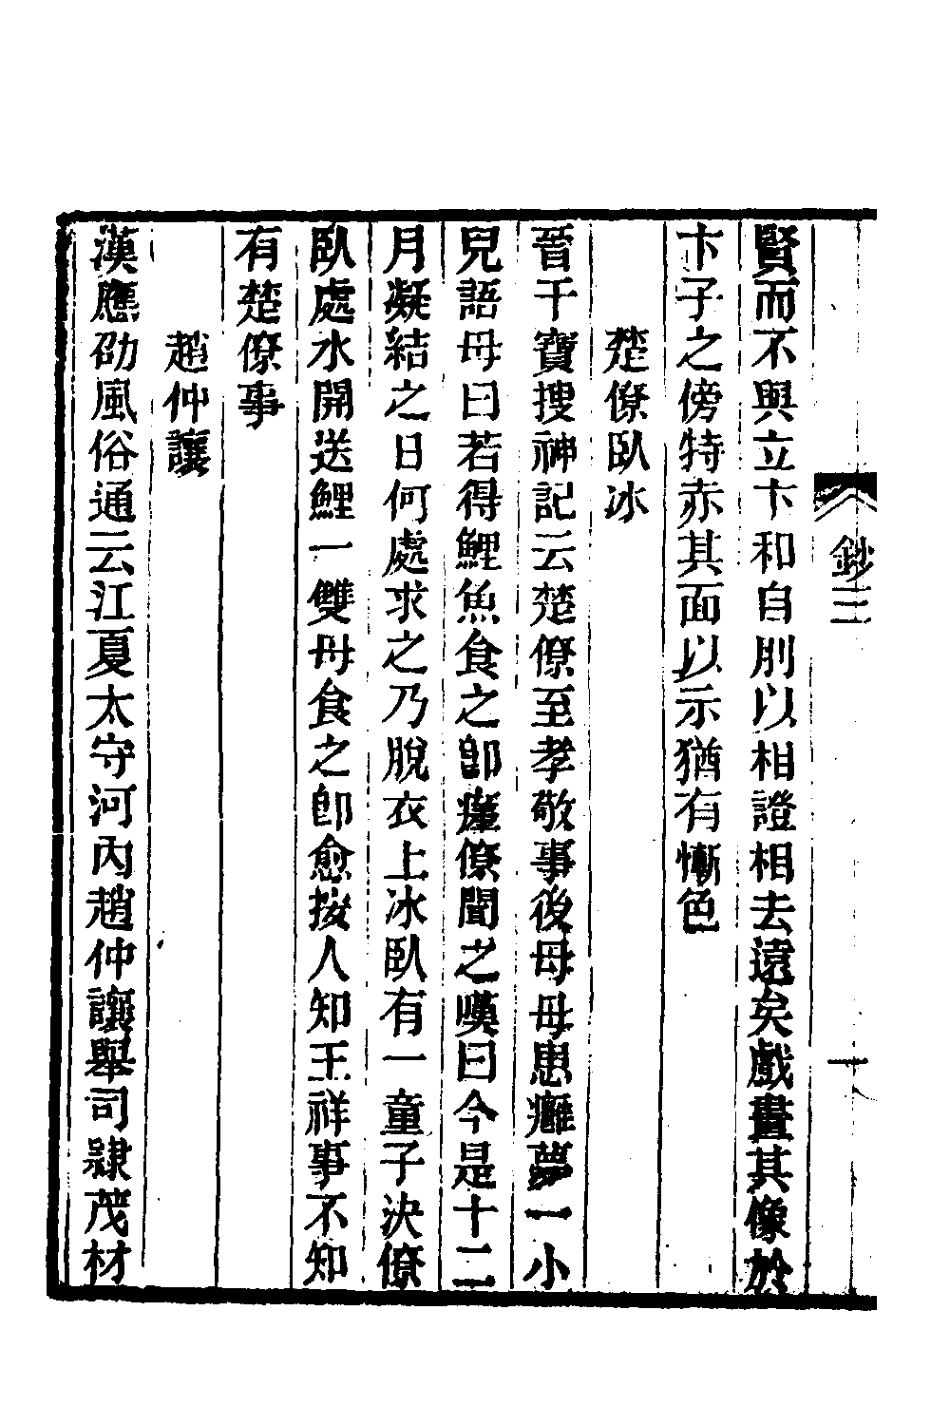 賢而不與立卞和自刖以相證相去遠矣戲畫其像於
卞子之傍特赤其面以示猶有慚色
楚僚臥冰
晉干寶搜神記云楚僚至孝敬事後母母患癰夢一小
兒語母曰若得鯉魚食之卽瘥僚聞之嘆曰今是十二
月凝結之日何處求之乃脫衣上冰臥有一童子決僚
臥處水開送鯉一雙母食之卽愈按人知王祥事不知
有楚僚事
趙仲讓
漢應劭風俗通云江夏太守河內趙仲讓舉司隸茂材
鈔三
一